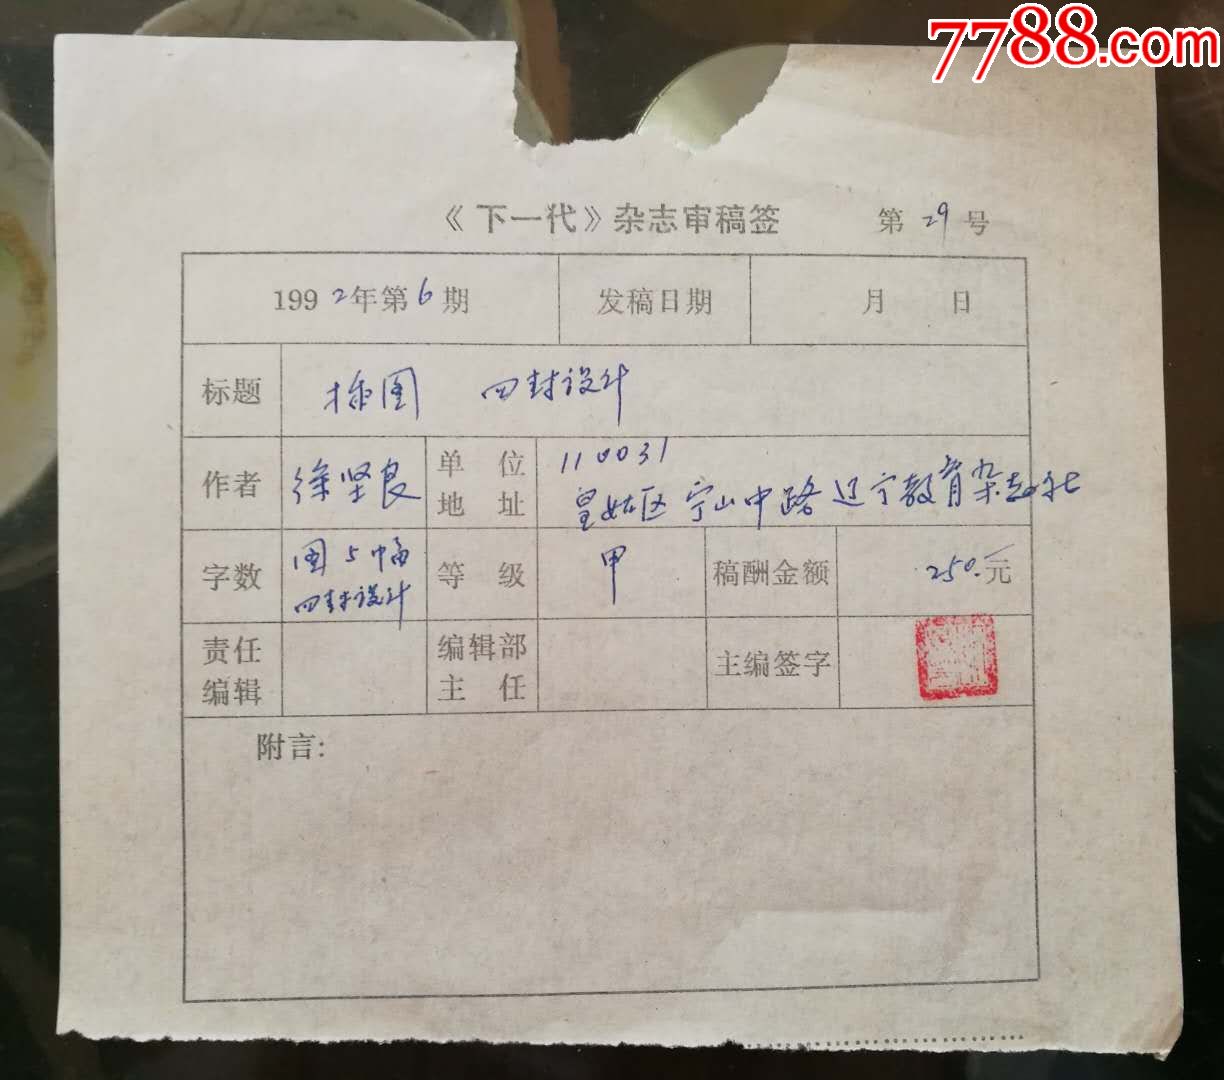 7788.com
《下一代》杂志审稿签 第29号
1992年第6期 发稿日期 月 日
标题 插图 四封设计
作者 徐坚良 单位地址 110031
皇姑区宁山中路辽宁教育杂志社
字数 图5幅 四封设计 等级 甲 稿酬金额 250.元
责任编辑 编辑部主任 主编签字
附言: